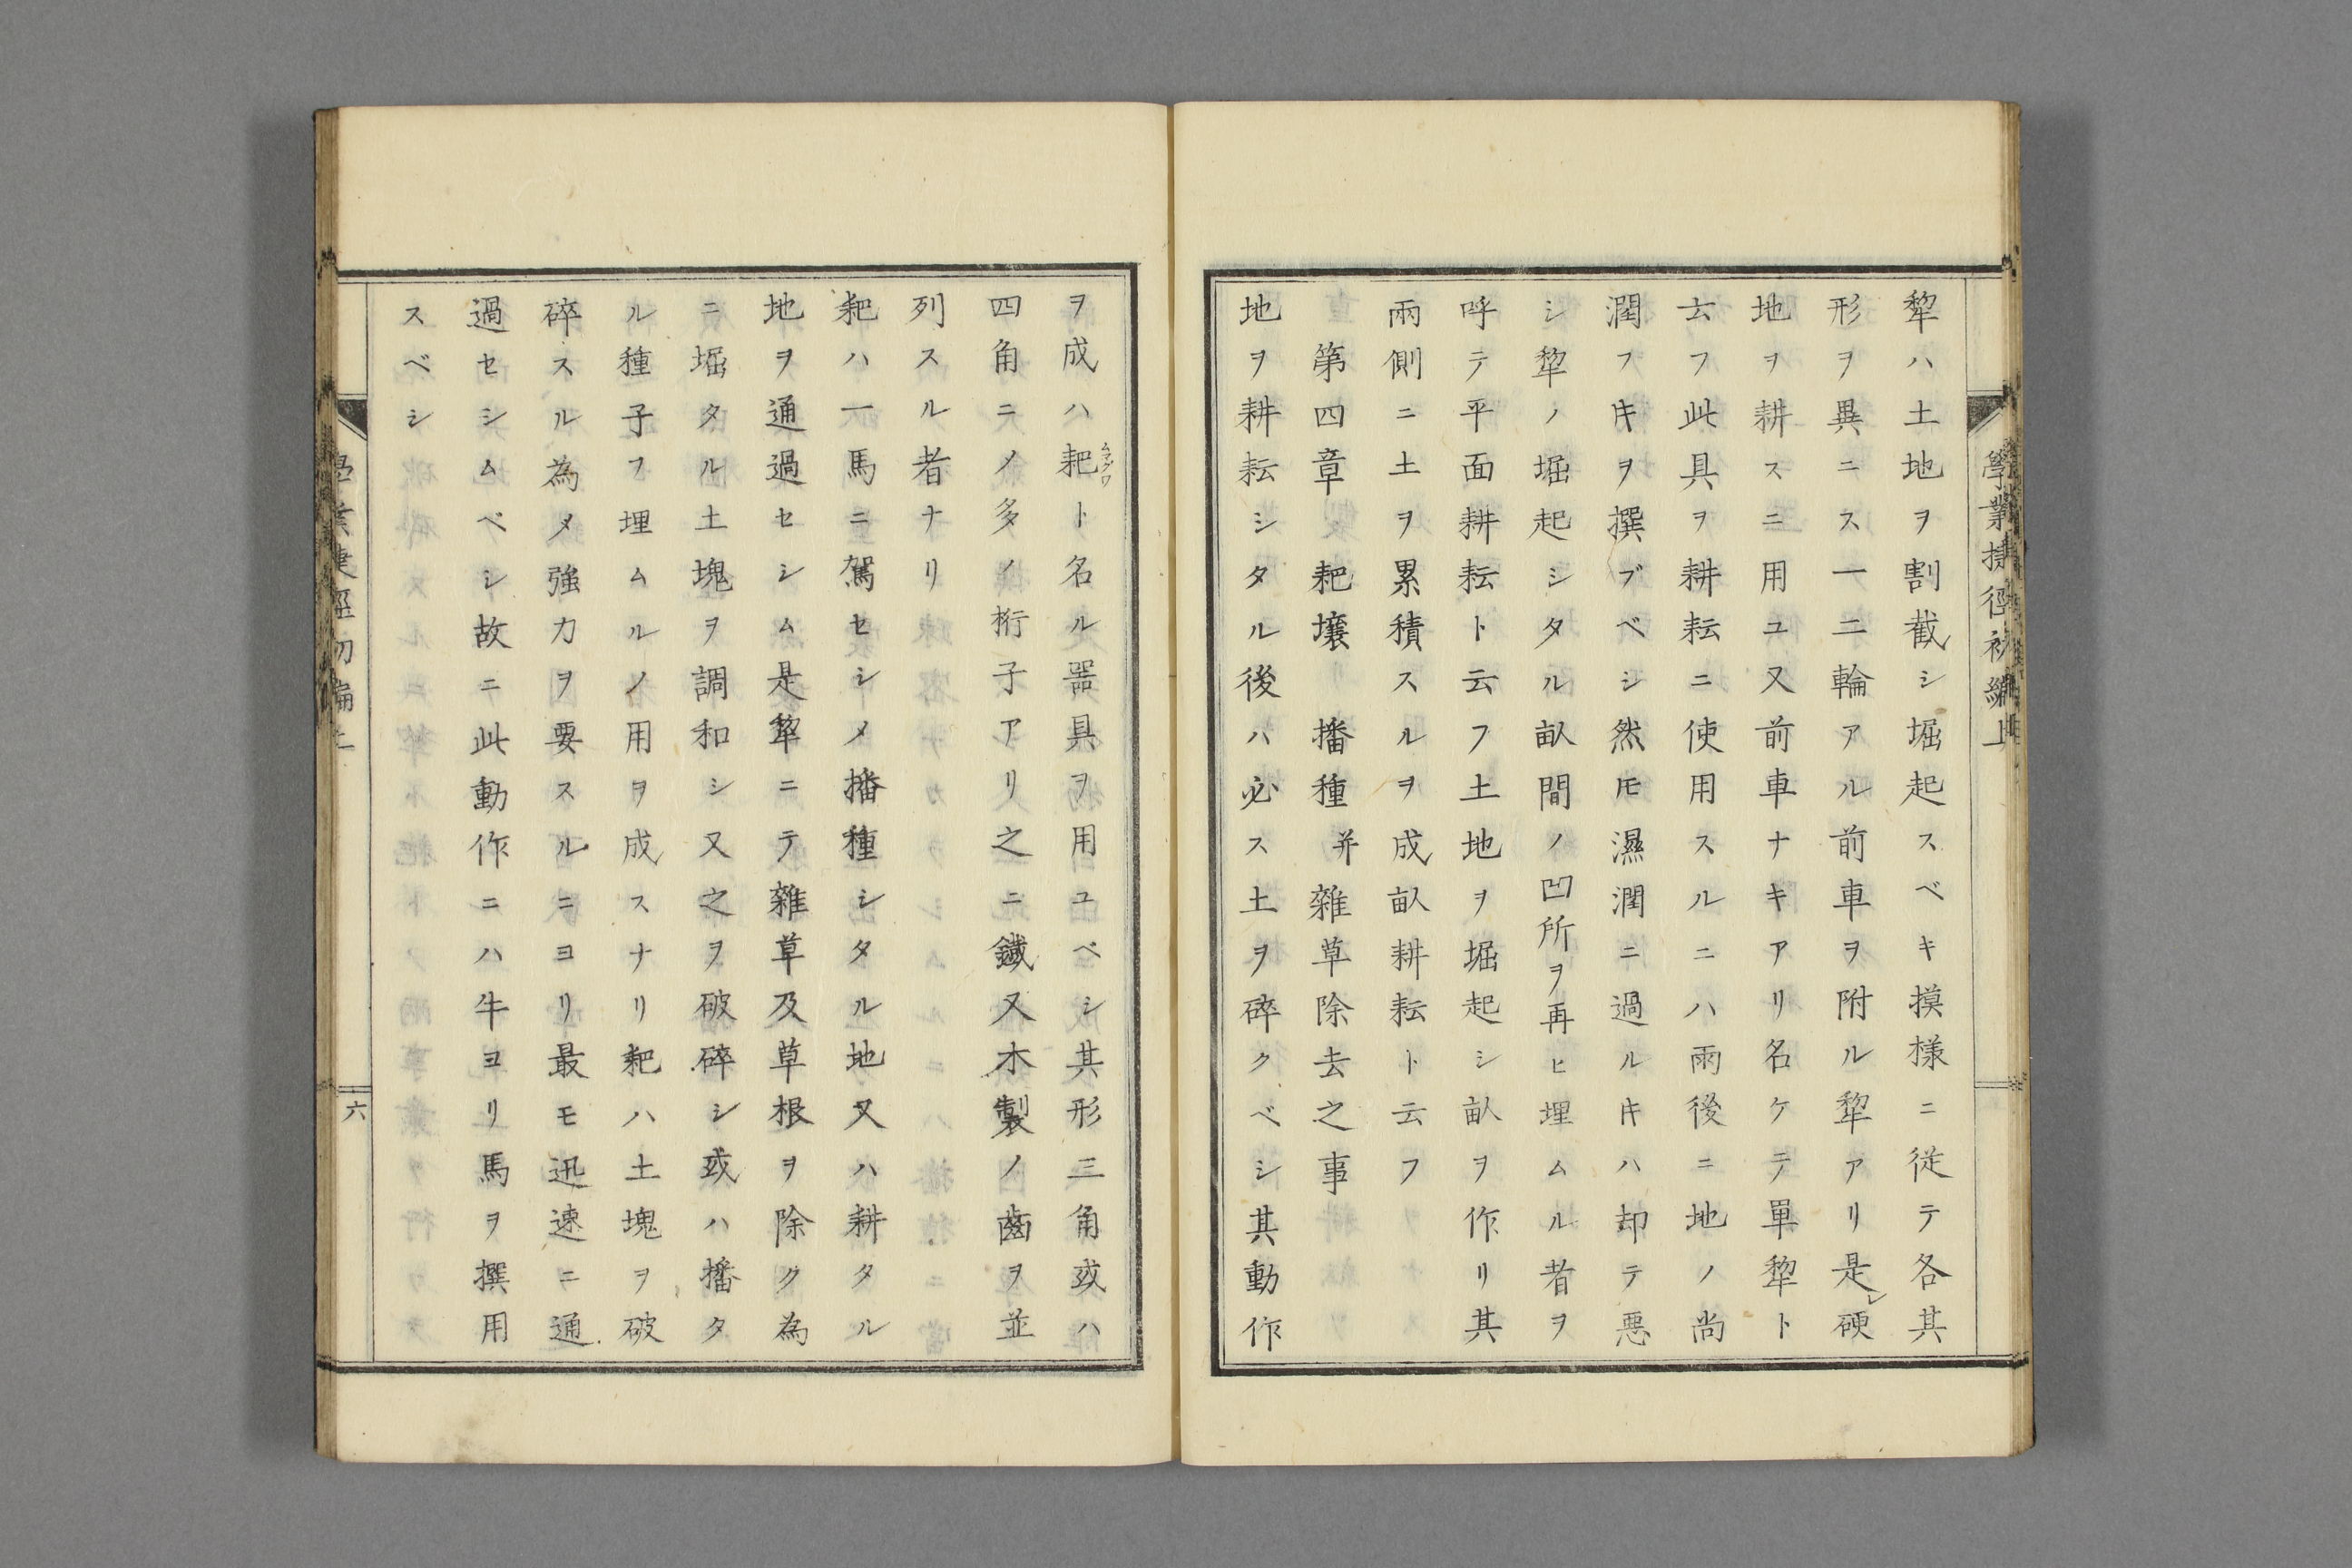 犂ハ土地ヲ割截シ堀起スベキ摸様ニ従テ各其
形ヲ異ニス一二輪アル前車ヲ附ル犂アリ是レ硬
地ヲ耕スニ用ユ又前車ナキアリ名ケテ単犂ト
云フ此具ヲ耕耘ニ使用スルニハ雨後ニ地ノ尚
潤フキヲ撰ブベシ然モ濕潤ニ過ルキハ却テ悪
シ犂ノ堀起シタル畝間ノ凹所ヲ再ヒ埋ムル者ヲ
呼テ平面耕耘ト云フ土地ヲ堀起シ畝ヲ作リ其
兩側ニ土ヲ累積スルヲ成畝耕耘ト云フ
第四章 耙壌 播種 并雜草除去之事
地ヲ耕耘シタル後ハ必ス土ヲ碎クベシ其動作
ヲ成ハ耙ト名ル噐具ヲ用ユベシ其形三角或ハ
四角ニノ多ノ桁子アリ之ニ鐵又木製ノ齒ヲ並
列スル者ナリ
耙ハ一馬ニ駕セシメ播種シタル地又ハ耕タル
地ヲ通過セシム是犂ニテ雜草及草根ヲ除ク為
ニ堀タル土塊ヲ調和シ又之ヲ破碎シ或ハ播タ
ル種子フ埋ムルノ用ヲ成スナリ耙ハ土塊ヲ破
碎スル為メ強力ヲ要スルニヨリ最モ迅速ニ通
過セシムベシ故ニ此動作ニハ牛ヨリ馬ヲ撰用
スベシ
六